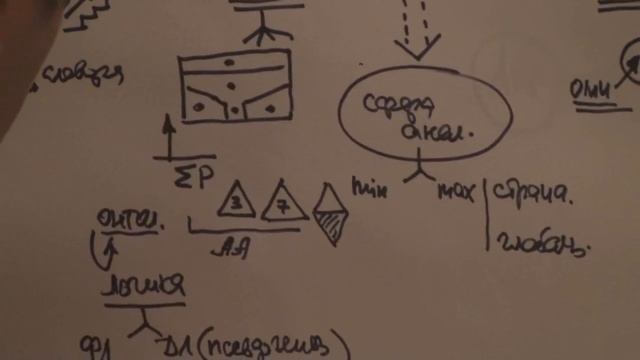 ОМИ
сфера
анал.
ΣP
min
max
страна.
глобаль.
3
7
онтол.
АА
логика
ФЛ
ДЛ (псевдогениз)